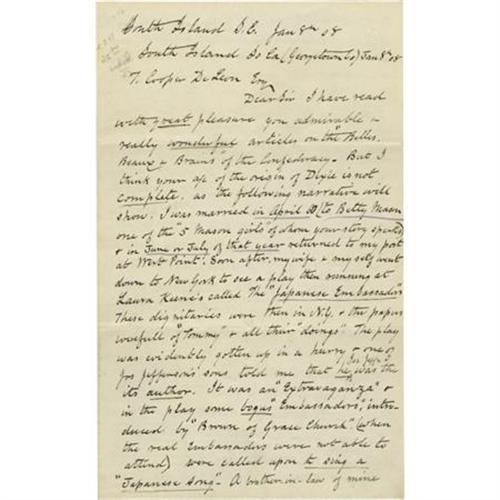 South Island S.C. Jan 8th 08
South Island So Ca (Georgetown Co) Jan 8 08
T. Cooper De Leon Esq
Dear Sir I have read
with great pleasure you admirable &
really wonderful articles on the "Belles,
Beaux & Brains of the Confederacy. But I
think your a/c of the origin of Dixie is not
complete, as the following narrative will
show. I was married in April 60 (to Betty Mason
one of the "5 Mason girls" of whom your story speaks)
& in June or July of that year returned to my post
at West Point. Soon after, my wife & myself went
down to New York to see a play then running at
Laura Keene's called The "Japanese Embassadors"
These dignitaries were then in N.Y. & the papers
were full of "Tommy" & all their "doings". The play
was evidently gotten up in a hurry & one of
Jos Jefferson's sons told me that he was the
its author. It was an "Extravaganza" &
in the play some bogus "Embassadors", intro-
duced by "Brown of Grace Church" (when
the real Embassadors were not able to
attend) were called upon to sing a
"Japanese Song". A brother-in-law of mine